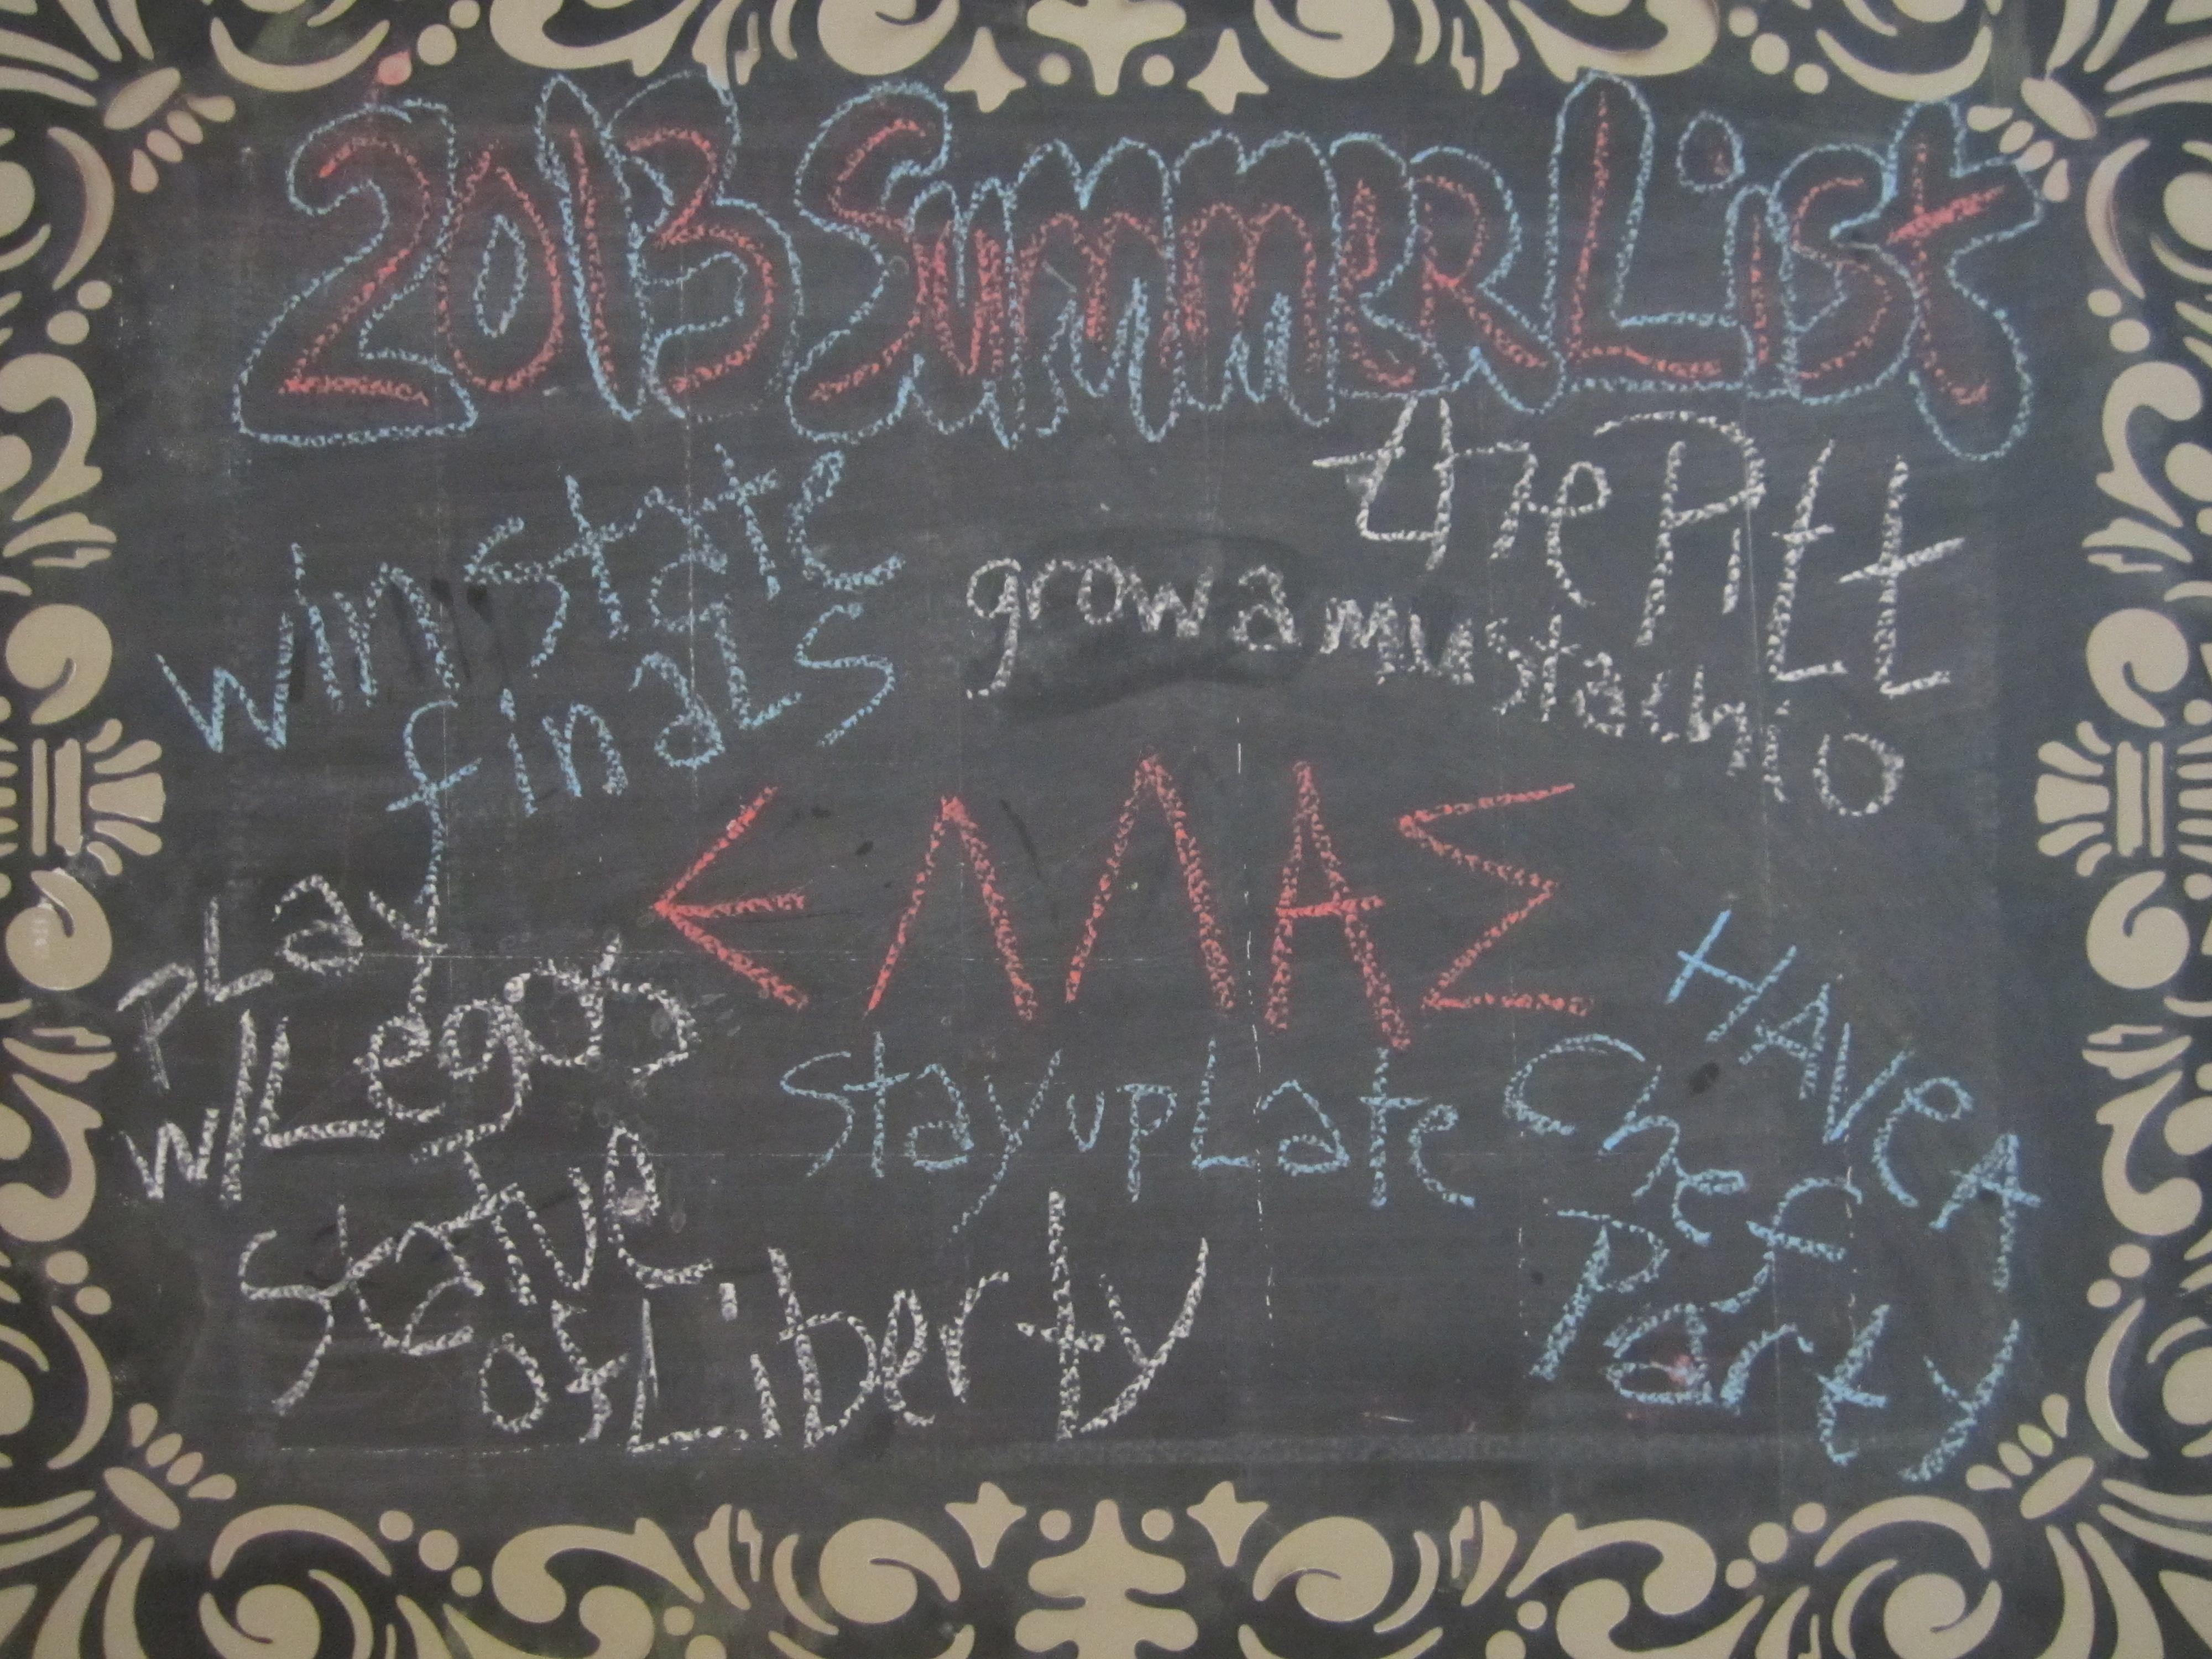 2013 SummeR List
the Pitt
win state
finals
grow a mustachio
EMMAZ
PLay
w/Legos
stay up Late
HAve A
Chef
Party
Statue
of Liberty